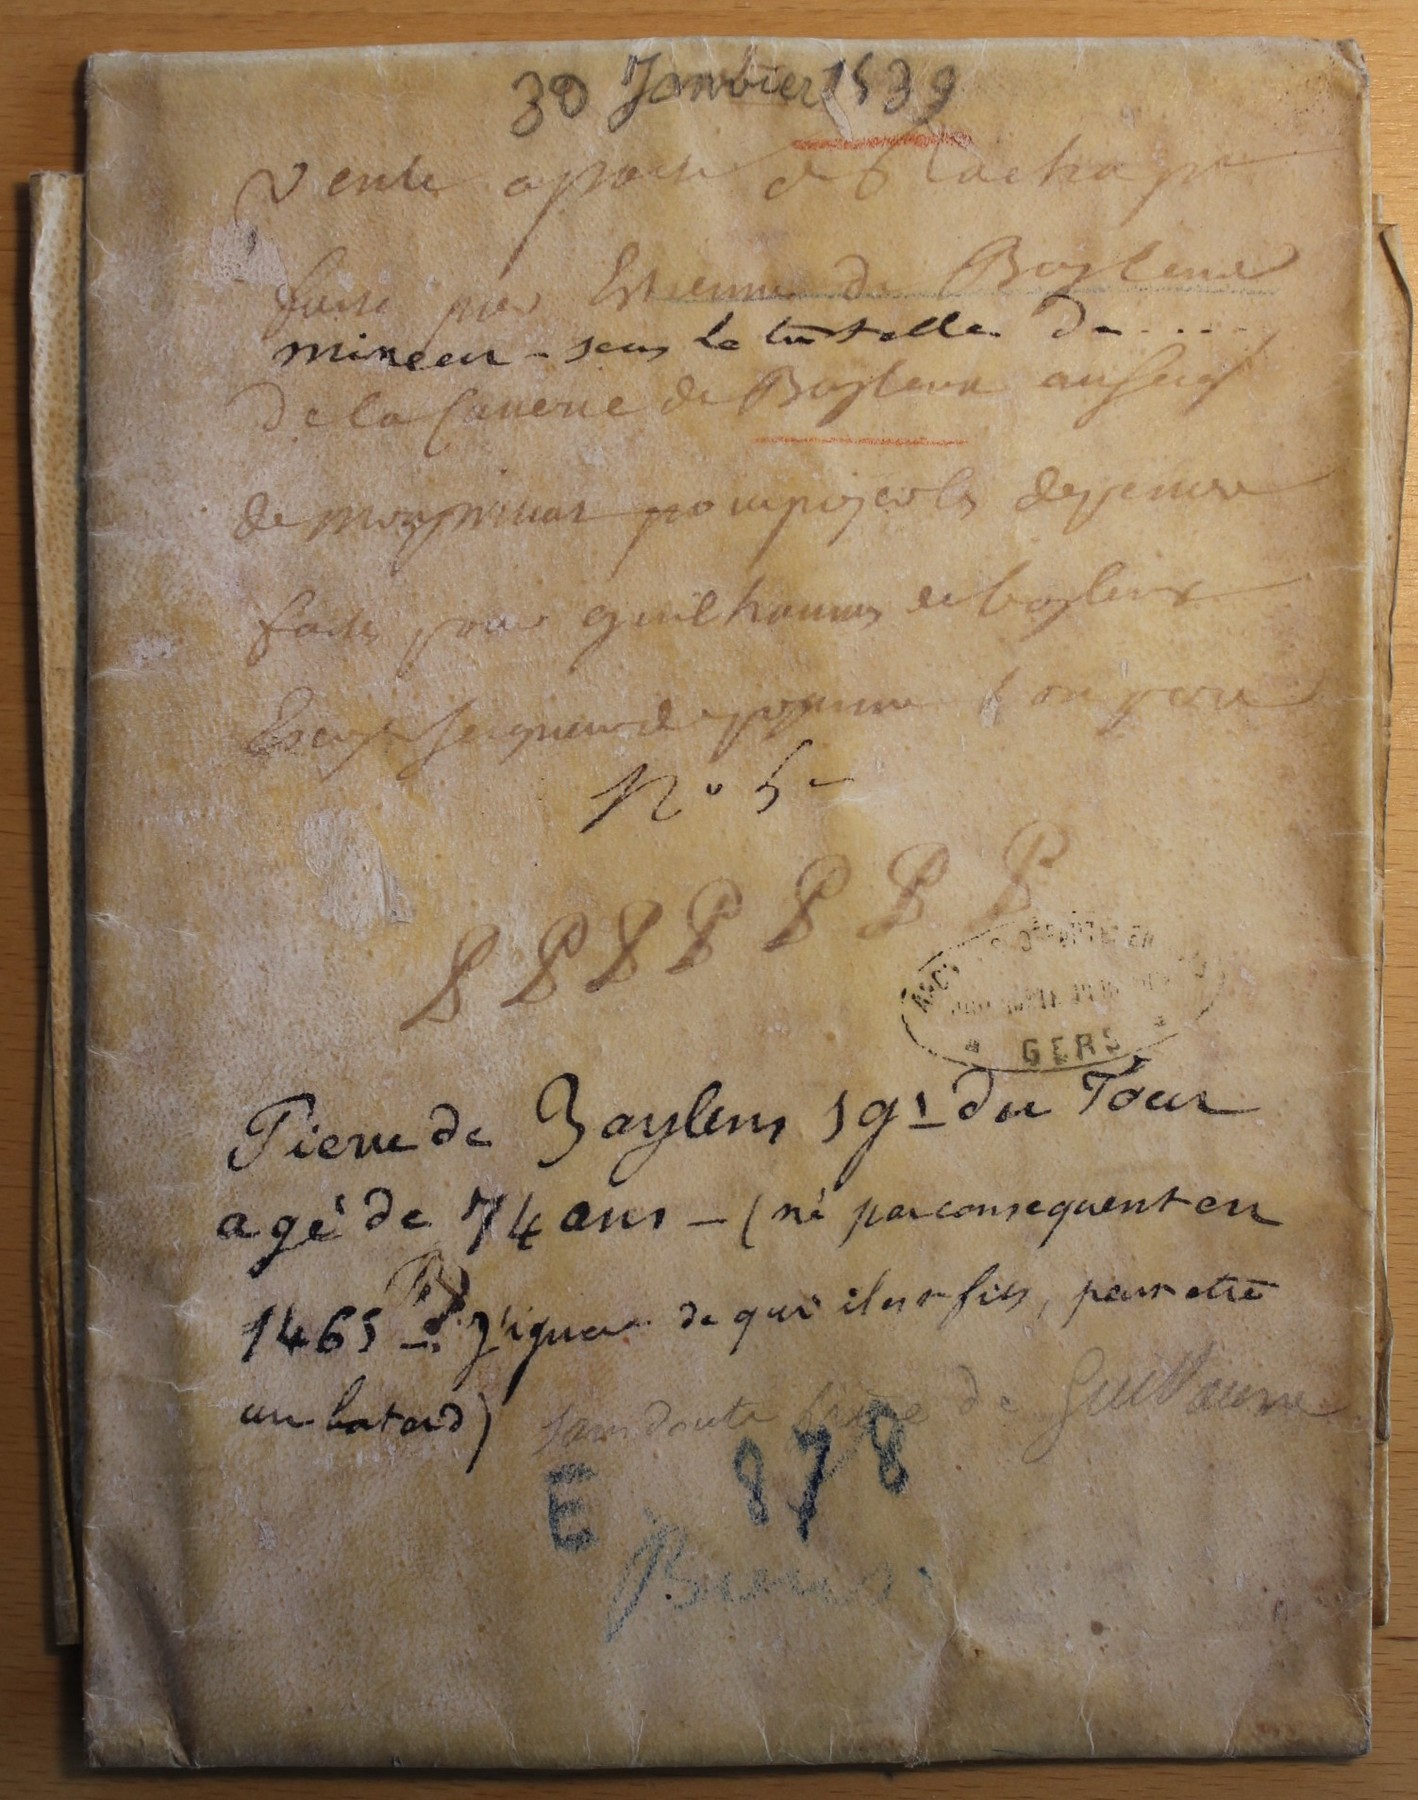 30 Janvier 1539
Vente a pacte de Rachapt
faite par Estienne de Baylenx
mineur - sous la tutelle de ....
de la Caverie de Baylenx au seigr
de
faite par guilhaume de baylenx
seigneur de poyanne son pere
No 5
P P P P P P P
GERS
Pierre de Baylens sgr du Tour
agé de 74 ans - (né par consequent en
1465 - J'ignore de qui il est fils, peut etre
un batard) sans doute frère de Guillaume
E 878